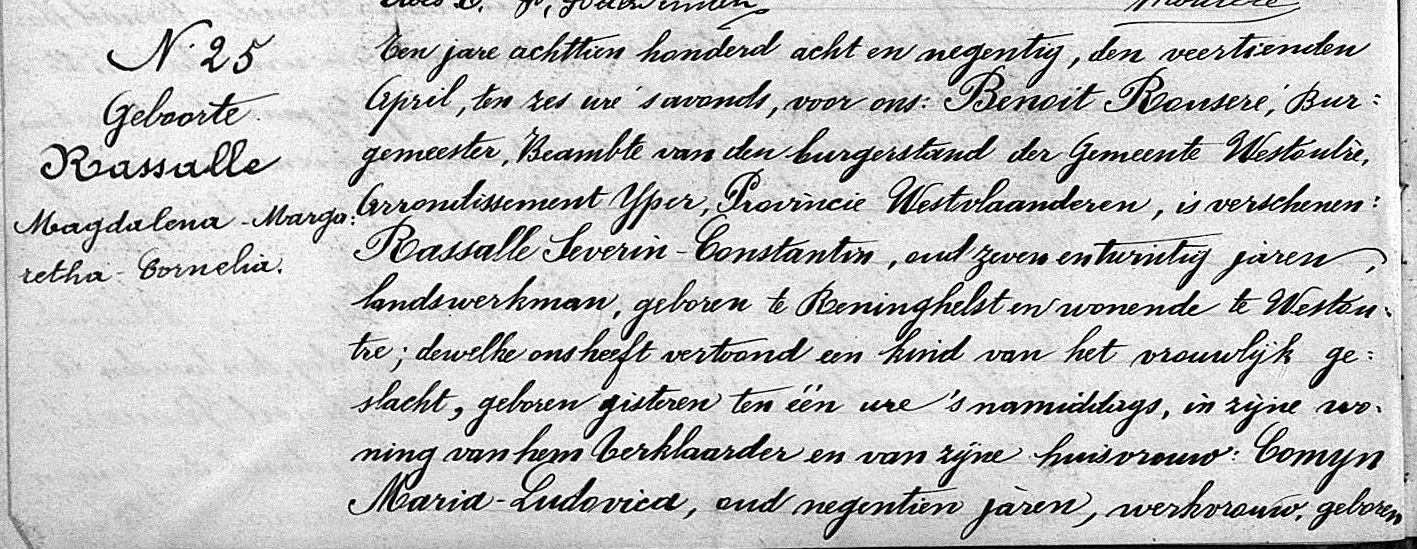 N. 25
Geboorte
Rassalle
Magdalena - Marga:
retha - Cornelia.
Ten jare achttien honderd acht en negentig, den veertienden
April, ten zes ure 's avonds, voor ons: Benoit Rouseré, Bur:
gemeester, Beambte van den burgerstand der Gemeente Westoutre,
Arrondissement Yper, Provincie Westvlaanderen, is verschenen:
Rassalle Severin-Constantin, oud zeven en twintig jaren,
landswerkman, geboren te Reninghelst en wonende te Westou:
tre; dewelke ons heeft vertoond een kind van het vrouwlijk ge:
slacht, geboren gisteren ten één ure 's namiddags, in zijne wo:
ning van hem Verklaarder en van zijne huisvrouw: Comyn
Maria-Ludovica, oud negentien jaren, werkvrouw, geboren